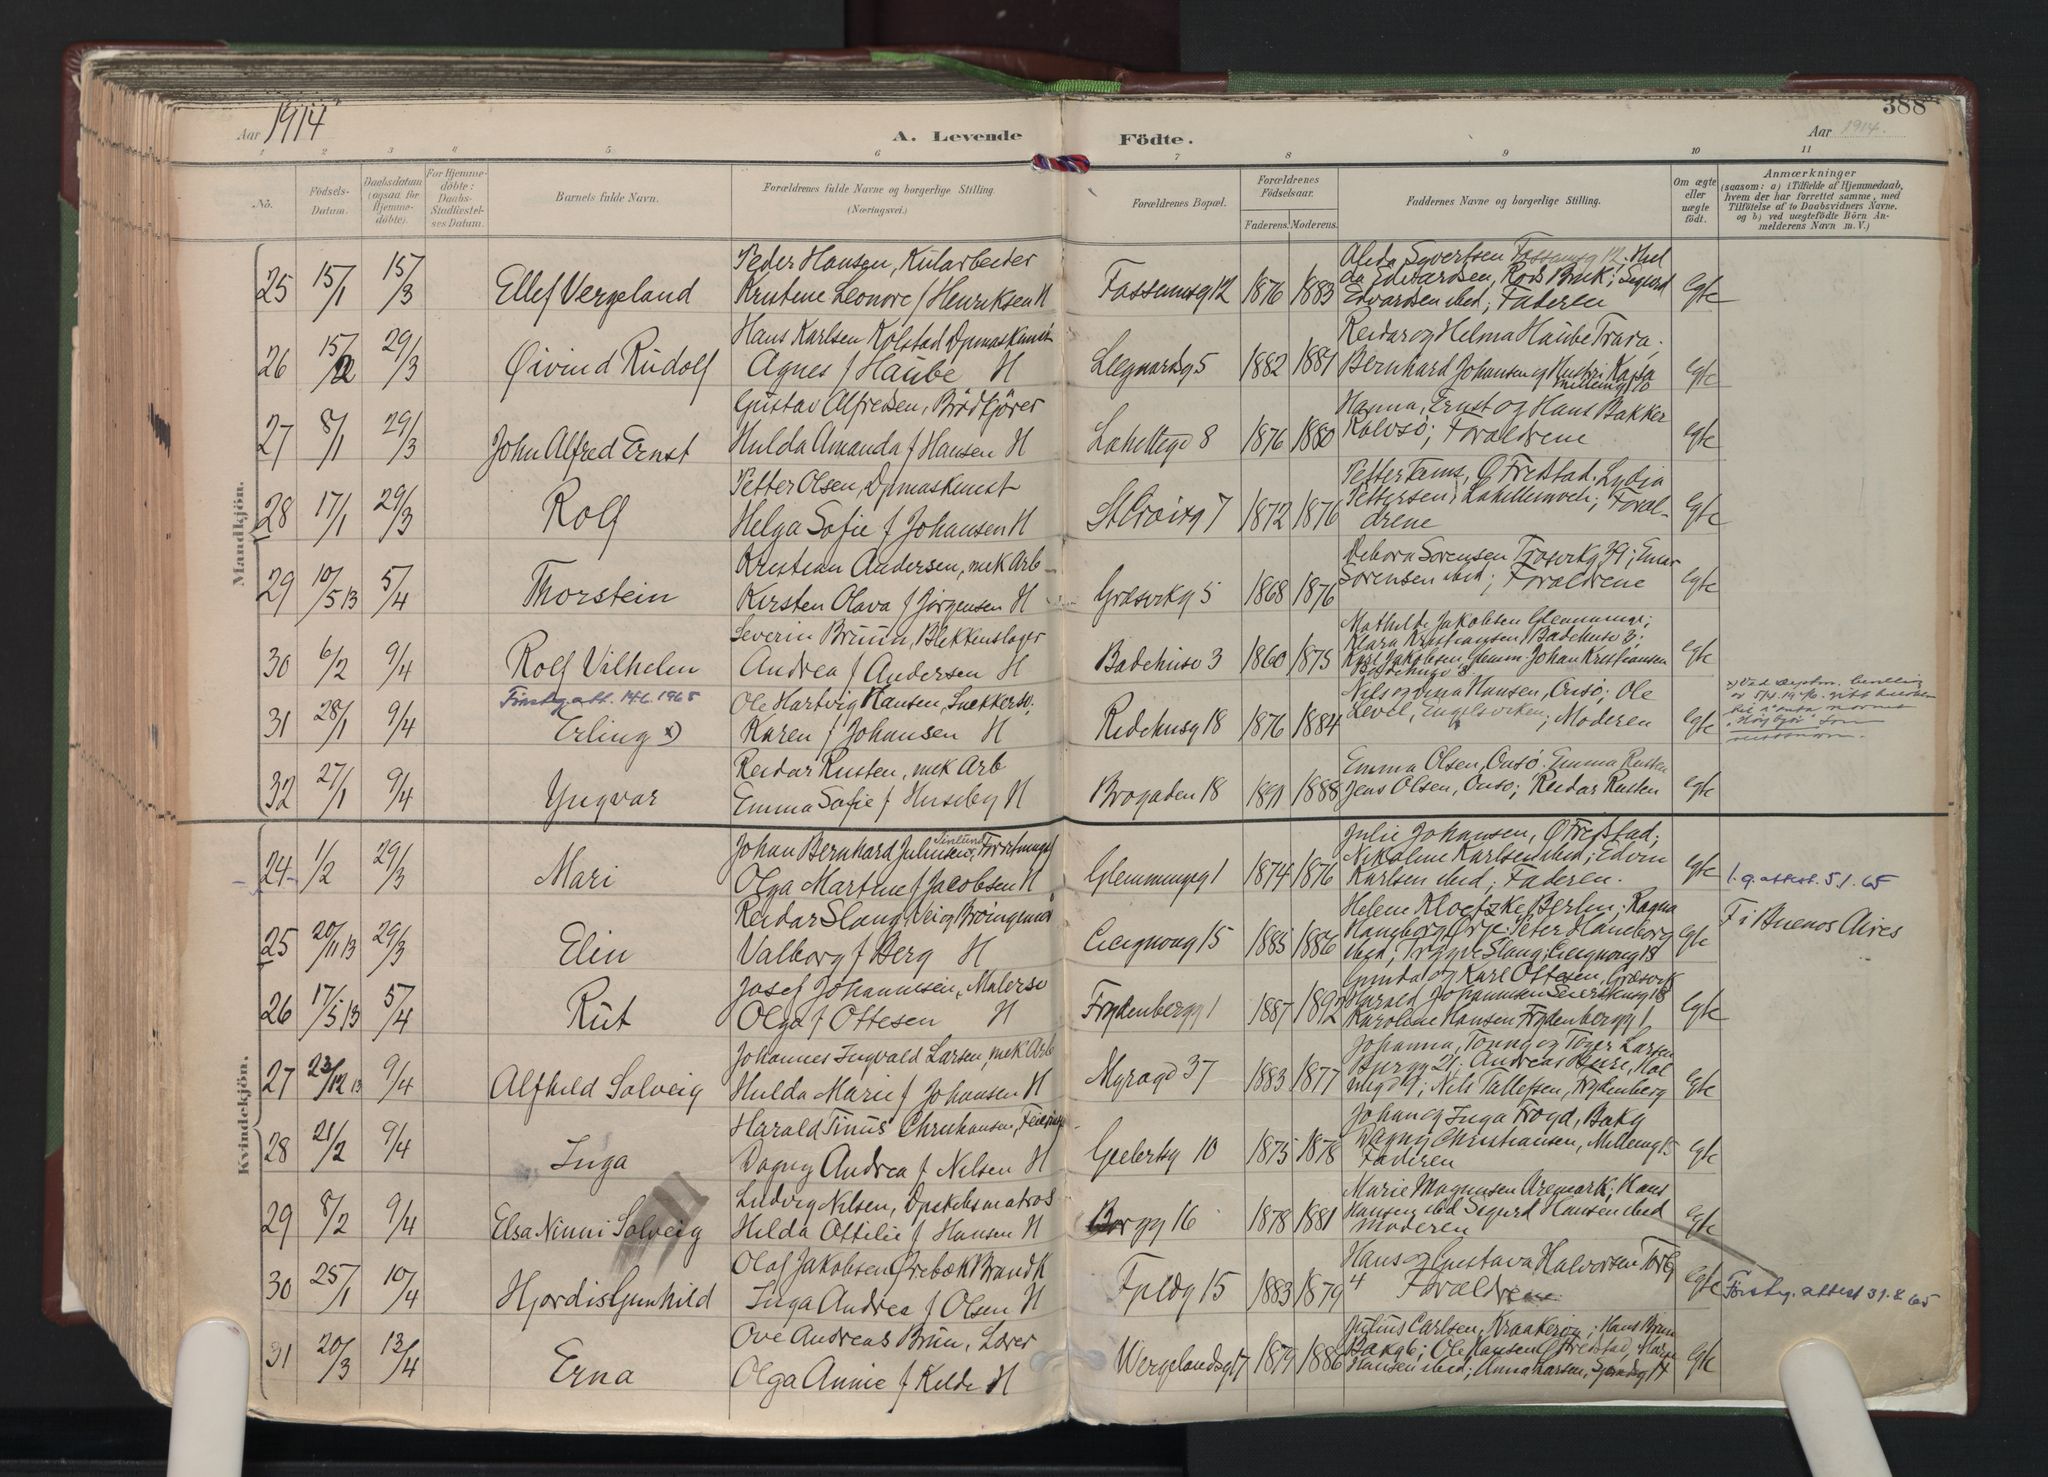 388
Aar 1914
A. Levende Födte.
Aar 1914.
1 2 3 4 5 6 7 8 9 10 11
No.
Födsels-Datum.
Daabsdatum (ogsaa for Hjemmedöbte).
For Hjemmedöbte: Daabs-Stadfæstelses Datum.
Barnets fulde Navn.
Forældrenes fulde Navne og borgerlige Stilling. (Næringsvei.)
Forældrenes Bopæl.
Forældrenes Födselsaar.
Faderens. Moderens.
Faddernes Navne og borgerlige Stilling.
Om ægte eller uægte födt.
Anmærkninger
(saasom: a) i Tilfælde af Hjemmedaab, hvem der har forrettet samme, med Tilföielse af to Daabsvidners Navne, og b) ved uægtefödte Börn Anmelderens Navn m. V.)
Mandkjön.
25 15/1 15/3 Ellef Vergeland
Peder Hansen, Kularbeider
Kristine Leonore f Henriksen H
Fossumsg 12 1876 1883
Edvardsen ibd; Faderen
Egte
26 15/2 29/3 Øivind Rudolf
Hans Karlsen Kolstad Dpmaskinist
Agnes f Haube H
Leegaardsg 5 1882 1881
Reidar og Helma Haube Trara;
Bernhard Johansen og Hustri Kajsa
Egte
27 8/1 29/3 John Alfred Ernst
Gustav Alfredsen, Brödkjörer
Hulda Amanda f Hansen H
Lahellegd 8 1876 1880
Hanna, Ernst og Hans Bakker
Kalvsö; Forældrene
Egte
28 17/1 29/3 Rolf
Petter Olsen, Dpmaskinist
Helga Sofie f Johansen H
St Croixg 7 1872 1876
Ø Fredstad. Lydia
Pettersen, Lahellemoen; Foræl-
drene
Egte
29 10/5 13 5/4 Thorstein
Kristian Andersen, mek Arb
Kirsten Olava f Jørgensen H
Græsvikg 5 1868 1876
Debora Sörensen Trosvikg 39; Einar
Sörensen ibd; Forældrene
Egte
30 6/2 9/4 Rolf Vilhelm
Severin Bruun, Blikkenslager
Andrea f Andersen H
Badehusg 3 1860 1875
Mathilde Jakobsen Glemminge;
Klara Kristiansen, Badehusg 3;
Kari Jakobsen Glemm. Johan Kristiansen
Badehusg 3
Egte
Förstg.att. 14.6.1968
31 28/1 9/4 Erling x)
Ole Hartvig Hansen, Snekkersv;
Karen f Johansen H
Ridehusg 18 1876 1884
Hansen, Onsö; Ole
Engelsviken; Moderen
Egte
32 27/1 9/4 Yngvar
Reidar Rusten, mek Arb
Emma Sofie f Huseby H
Brogaden 18 1891 1888
Emma Olsen, Onsö. Emma Rusten
Jens Olsen, Onsö; Reidar Rusten
Egte
Kvindekjön.
24 1/2 29/3 Mari
Johan Bernhard Juliusen
Olga Martine f Jacobsen H
Glemmingeg 1 1874 1876
Julie Johansen, Ø Fredstad;
Nikoline Karlsen ibid; Edvin
Karlsen ibid; Faderen.
Egte
f.g. attest. 5.1.65
25 20/11 13 29/3 Elin
Reidar Slang
Valborg f Berg H
Cicignong 15 1885 1886
Helene Kloetzke Berlin; Ragna
Haneborg Ørje. Peter Haneborg
ibid; Trygve Slang, Cicignong 18
Egte
F i Buenos Aires
26 17/5 13 5/4 Rut
Josef Johannesen, Malersv
Olga f Ottesen H
Frydenbergg 1 1887 1892
Gunda og Karl Ottesen, Græsvik
Harald Johannesen
Karoline Hansen Frydenbergg 1
Egte
27 23/12 13 9/4 Alfhild Solveig
Johannes Ingvald Larsen, mek Arb
Hulda Marie f Johansen H
Myragd 37 1883 1877
Nils Tallefsen, Frydenberg
Egte
28 21/2 9/4 Inga
Harald Tinius Christiansen,
Dagny Andrea f Nilsen H
Geelertsg 10 1875 1878
Johan og Inga Froyd, Bakg
Dagny Christiansen, Millemg 15
Faderen
Egte
29 8/2 9/4 Elsa Ninni Solveig
Ludvig Nilsen, Dpskibsmatros
Hilda Ottilie f Hansen H
Borgg 16 1878 1881
Marie Magnusen Aremark; Hans
Hansen ibd Sigurd Hansen ibid
Moderen
Egte
30 25/1 10/4 Hjordis Gunhild
Olaf Jakobsen Ørebæk Brandk
Inga Andrea f Olsen H
Fjeldg 15 1883 1879
Hans og Gustava Halvorsen Torvg
4 Forældrene
Egte
Förstg. attest 31.8.65
31 20/3 13/4 Erna
Ove Andreas Brun, Lærer
Olga Annie f Kilde H
Wergelandsg 17 1879 1886
Julius Carlsen, Kraakeröy; Hans Brun
Bakg 6; Ole Hansen Ø Fredstad,
Hansen ibid; Anna Larsen,
Egte